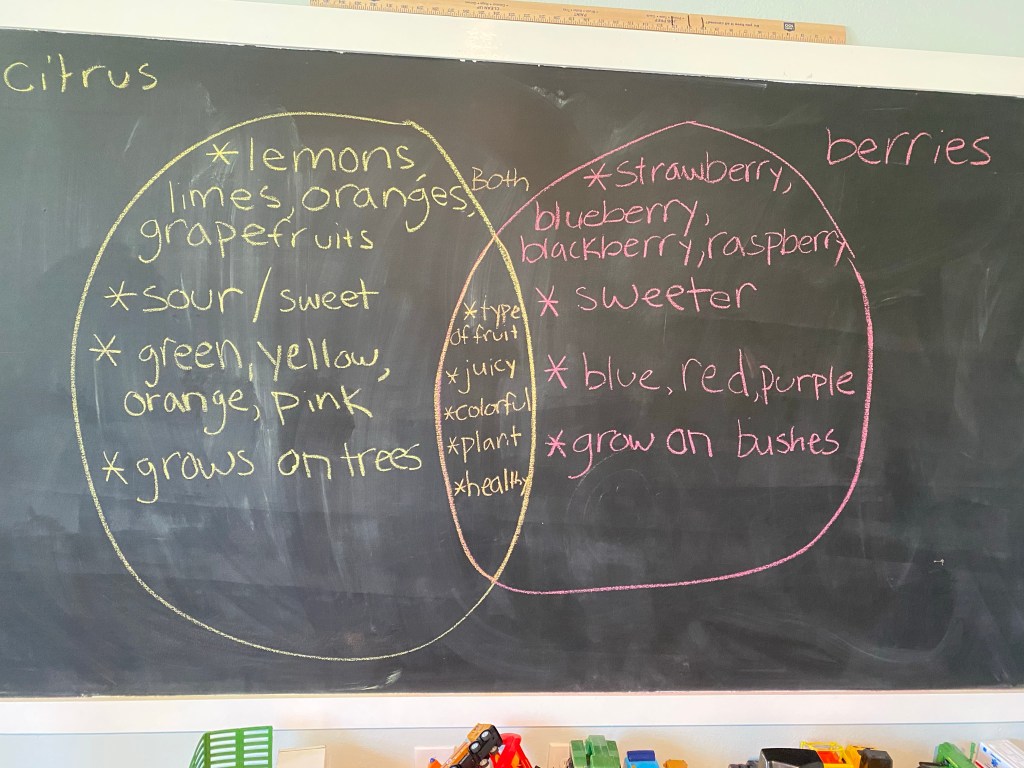 citrus
*lemons
limes, oranges,
grapefruits
*sour/sweet
* green, yellow,
orange, pink
*grows on trees
Both
*type
of fruit
*juicy
*colorful
*plant
*healthy
berries
*strawberry,
blueberry,
blackberry, raspberry
* sweeter
* blue, red, purple
*grow on bushes